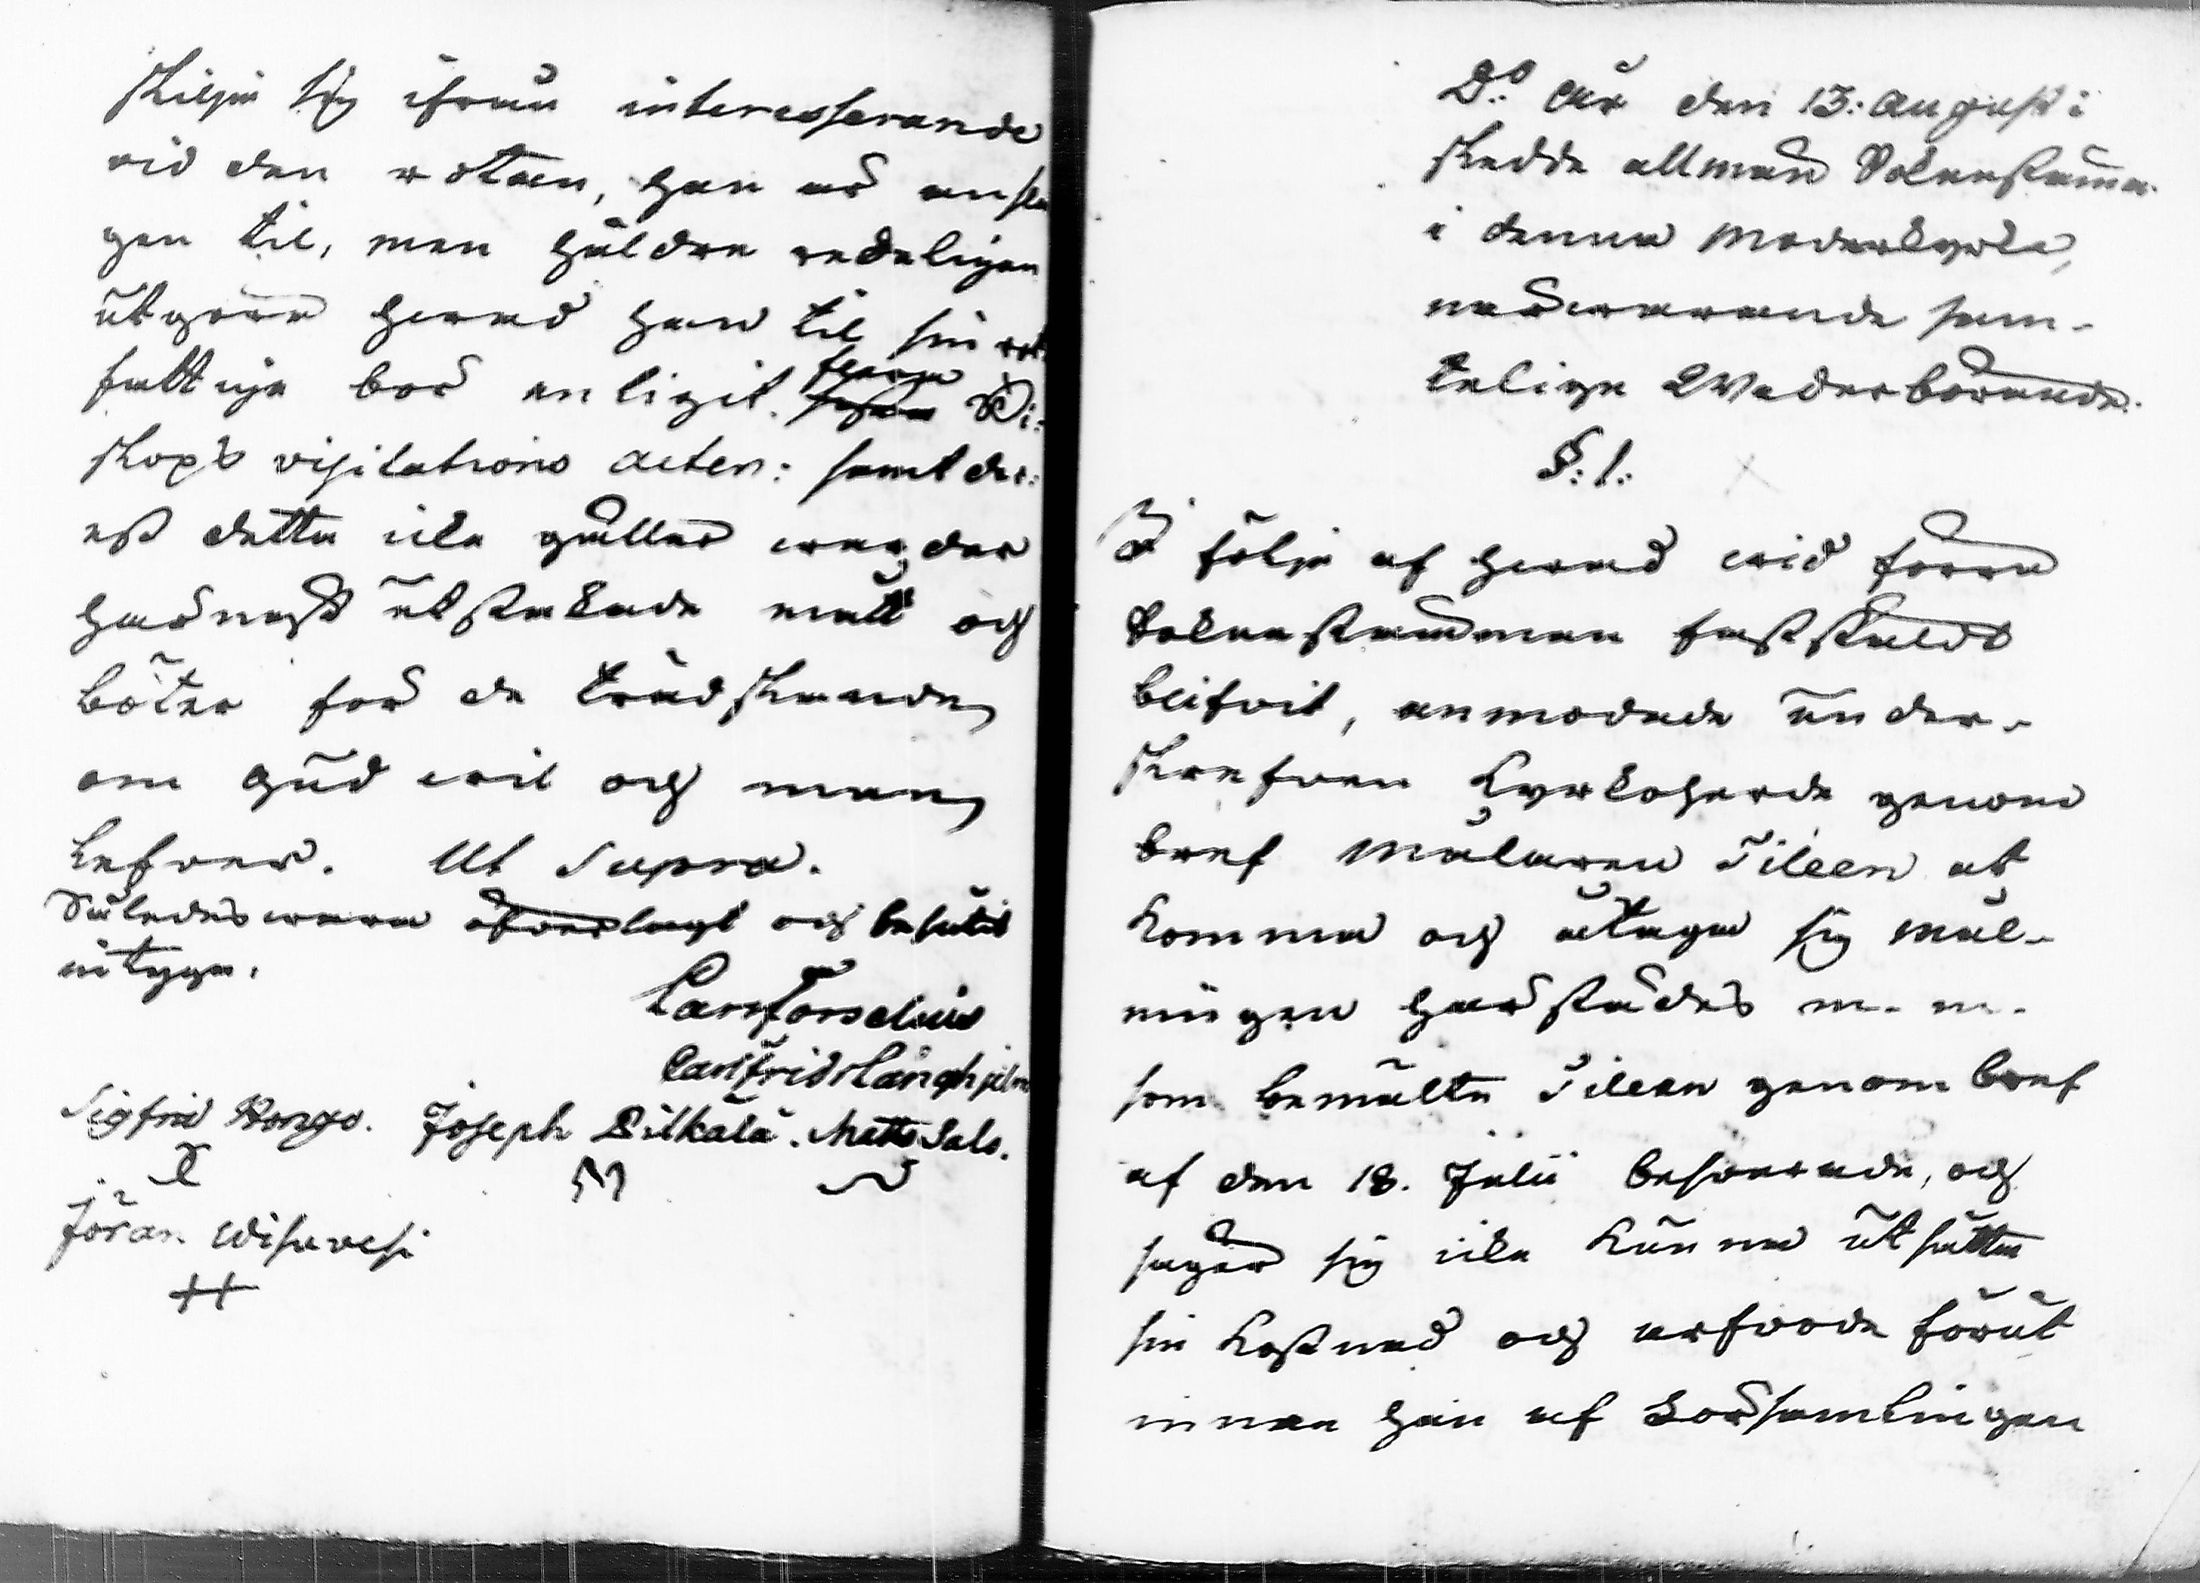 skilja sig ifrån interesserande
vid den rotan, han är ansla
gen til, men häldre redeligen
utgöra hwad han til sin rot
fattige bör enligit herr Bi:
skops visitations acten: samt der:
est detta icke gäller warder
härnest utstakade mått och
böter för de trädskande,
om Gud wil och man
lefver. Ut Supra.
Således wara öfverlagt och beslutit
intyga.
Lars Forselius
Carl Fridr Långhjelm
Sigfrid Kongo. Joseph Silkälä. Matts Salo.
Jöran Wesivesi
Do år den 13: Augusti
skedde allmän Sokenstäma
i denna Moderkyrka,
närwarande sam-
telige Wederbörande.
§: 1:
I följe af hwad wid förra
sokenstämman fastställt
blifvit, anmodade under-
skrefven Kyrkoherde genom
bref Målaren Tileen at
komma och åtaga sig mål-
ningen härstädes m. m.
som bemälte Tileen genom bref
af den 18. Julii beswarade, och
säger sig icke kunna utsätta
sin kostnad och arfvode förut
innan han af Församlingen